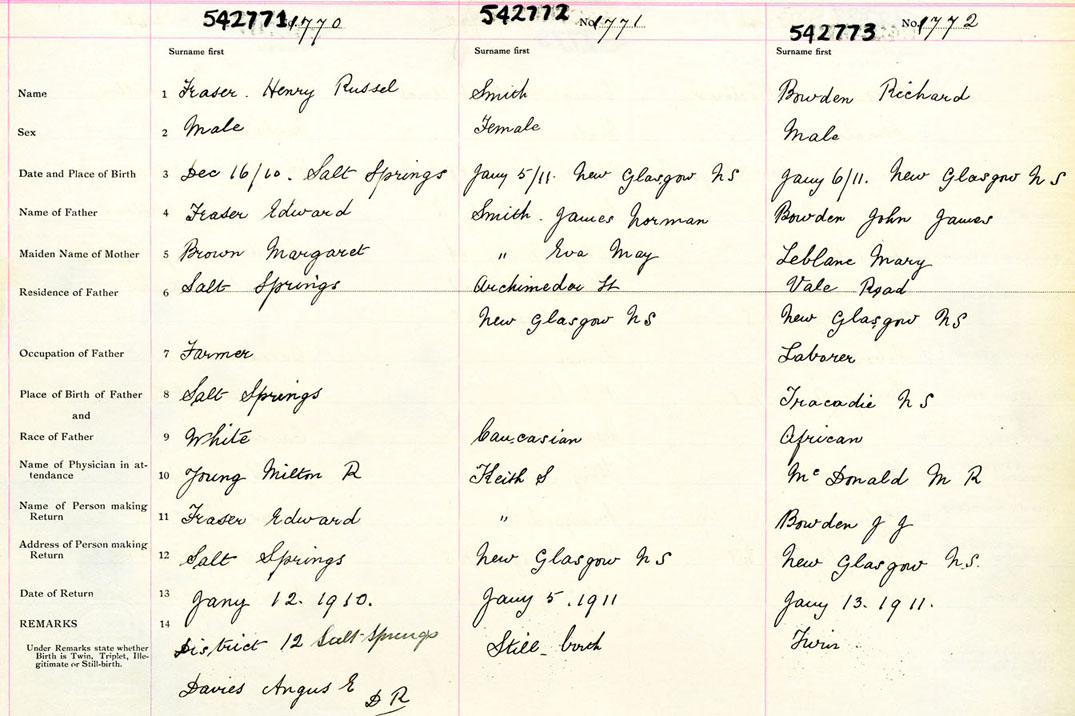 542771 1770 542772 No. 1771 542773 No. 1772
Surname first Surname first Surname first
Name 1 Fraser. Henry Russel Smith Bowden Richard
Sex 2 Male Female Male
Date and Place of Birth 3 Dec 16/10. Salt Springs Jany 5/11. New Glasgow NS Jany 6/11. New Glasgow NS
Name of Father 4 Fraser Edward Smith. James Norman Bowden John James
Maiden Name of Mother 5 Brown Margaret " Eva May Leblanc Mary
Residence of Father 6 Salt Springs Archimedor St Vale Road
New Glasgow NS New Glasgow NS
Occupation of Father 7 Farmer Laborer
Place of Birth of Father 8 Salt Springs Tracadie NS
and
Race of Father 9 White Caucasian African
Name of Physician in at-
tendance 10 Young Milton R Keith S McDonald M R
Name of Person making
Return 11 Fraser Edward " Bowden J J
Address of Person making
Return 12 Salt Springs New Glasgow NS New Glasgow N.S.
Date of Return 13 Jany 12. 1910. Jany 5. 1911 Jany 13. 1911.
REMARKS 14
Under Remarks state whether
Birth is Twin, Triplet, Ille-
gitimate or Still-birth.
District 12 Salt Springs Still-birth Twin
Davies Angus E DR